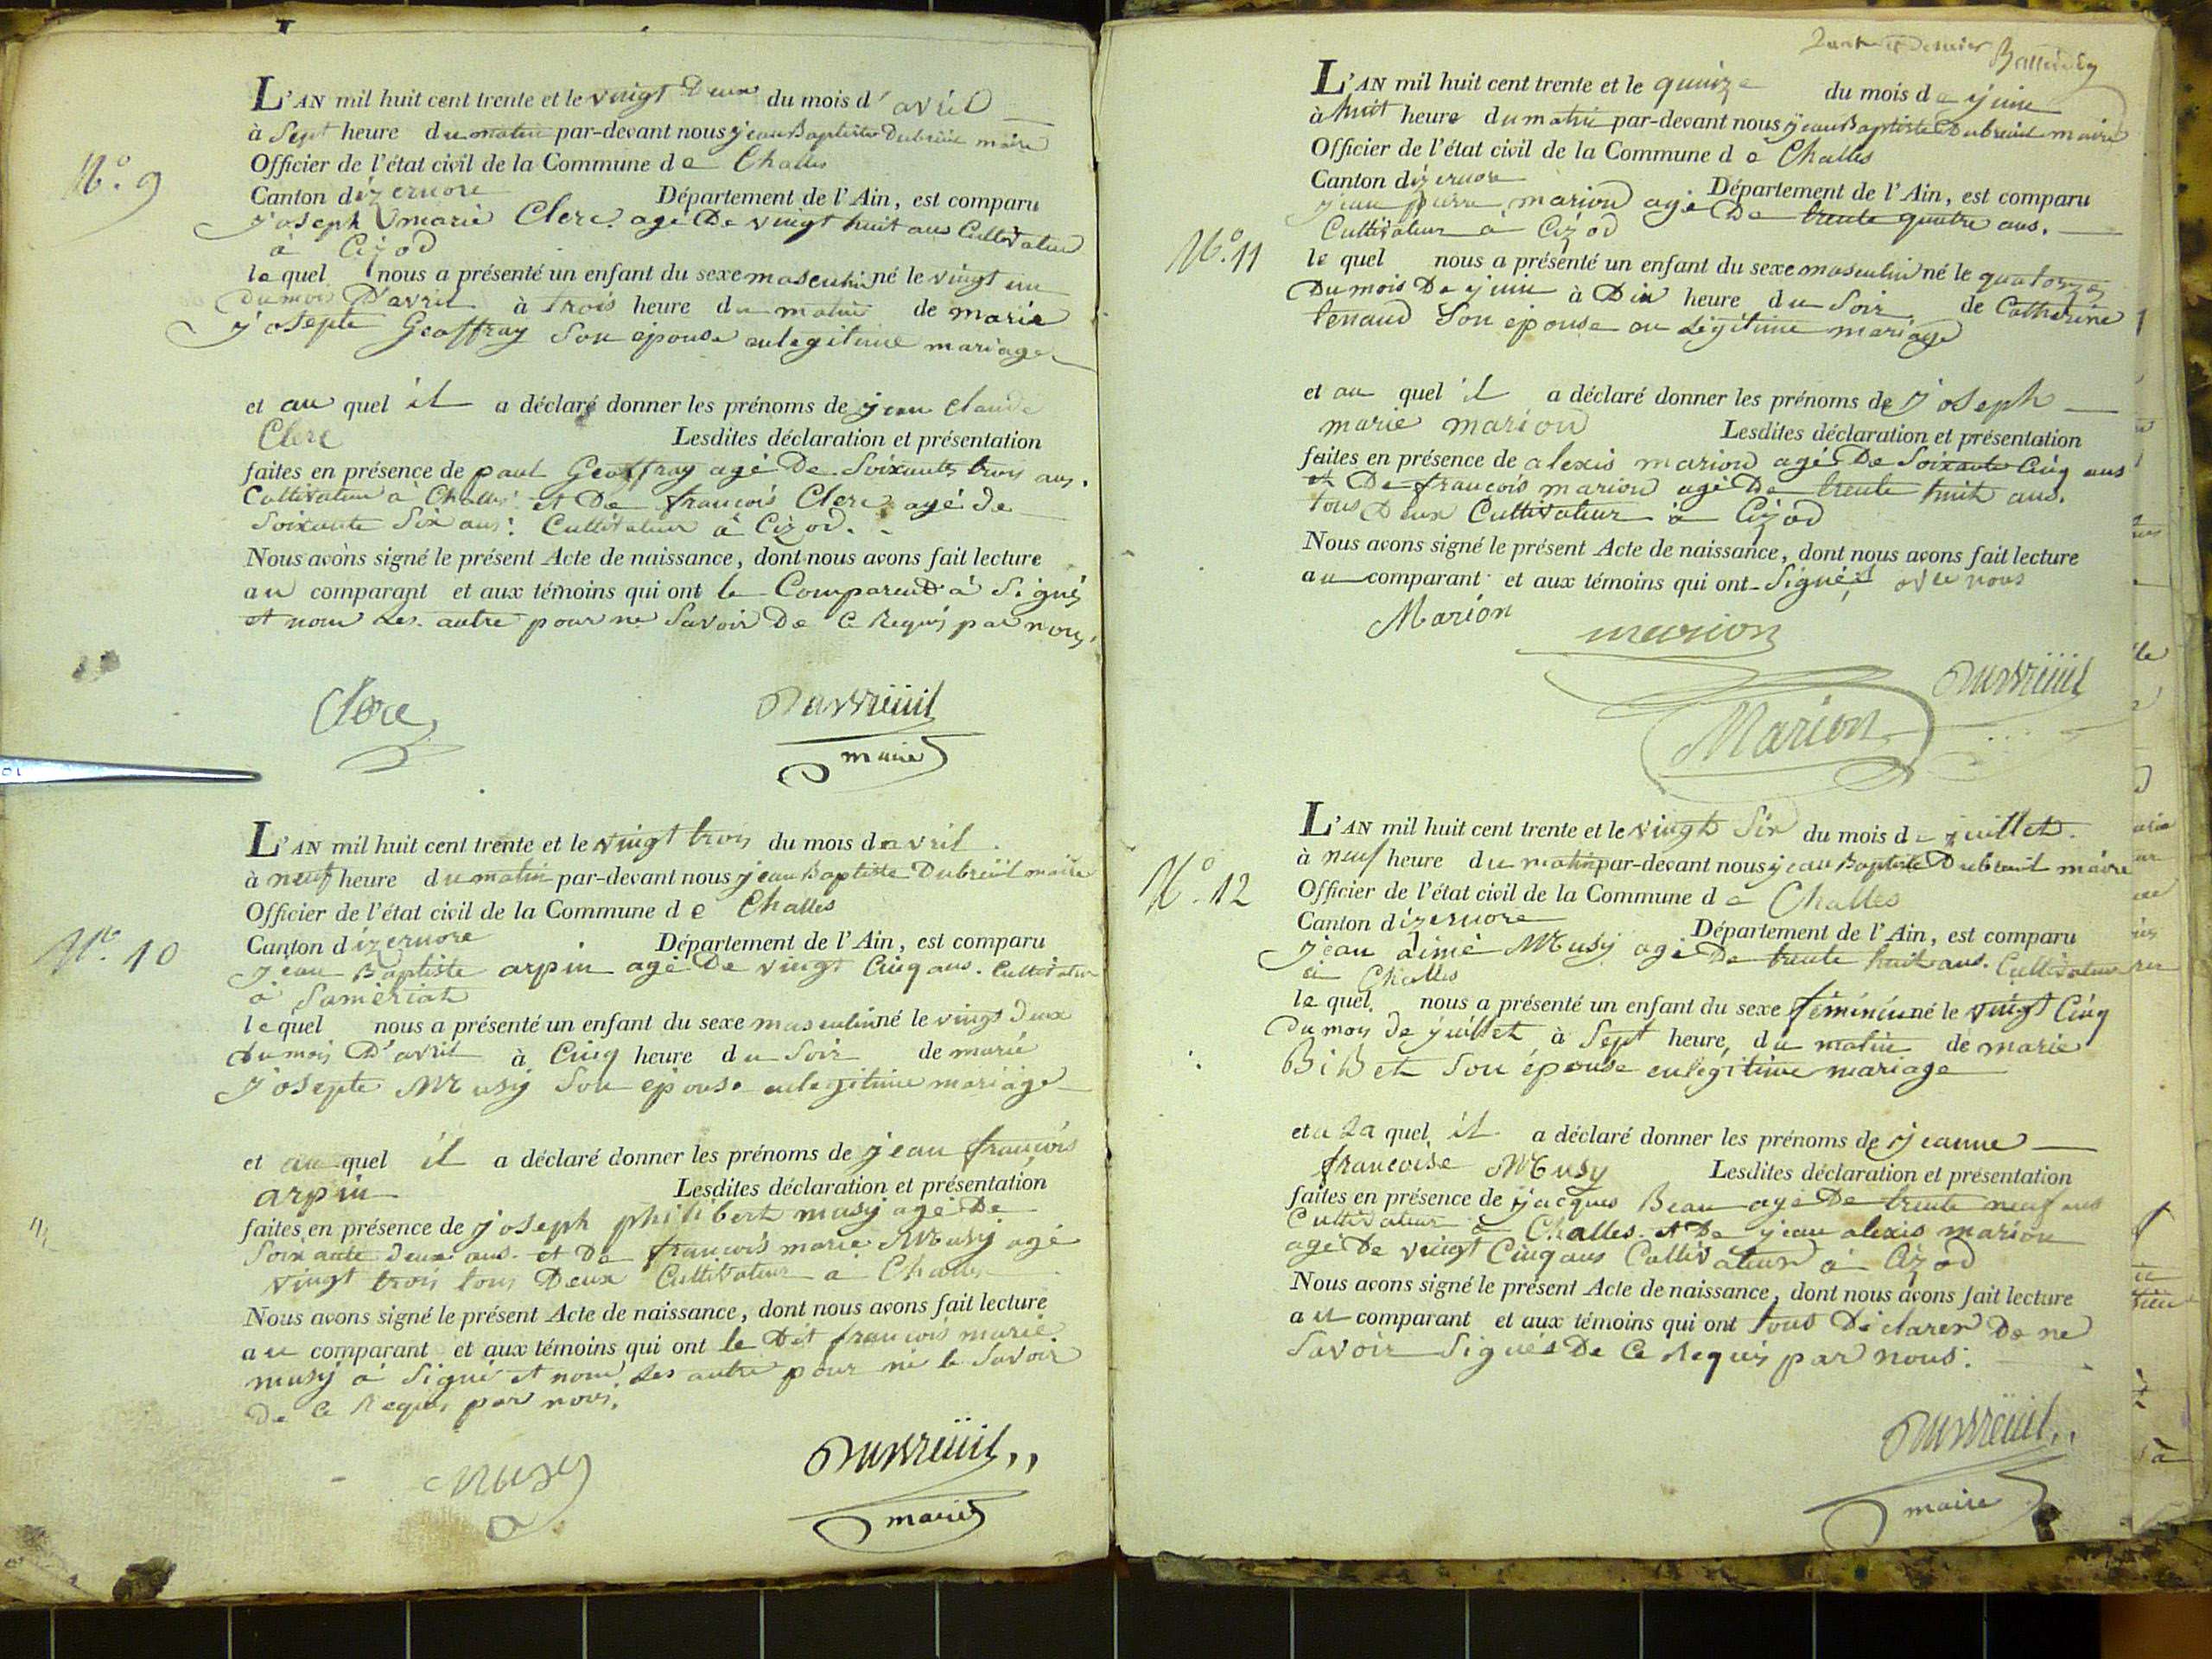 L'AN mil huit cent trente et le vingt Deux du mois d' avril
à Sept heure du matin par-devant nous jean Baptiste Dubreüil maire
Officier de l'état civil de la Commune de Challes
N.° 9
Canton d'izernore Département de l'Ain, est comparu
joseph marie Clerc agé De vingt huit ans Cultivateur
à Cizod
lequel nous a présenté un enfant du sexe masculin né le vingt un
Du mois D'avril à trois heure du matin de marie
josepte Geoffray Son épouse en legitime mariage
et au quel il a déclaré donner les prénoms de jean Claude
Clerc Lesdites déclaration et présentation
faites en présence de paul Geoffray agé De Soixante trois ans.
Cultivateur à Challes et De françois Clerc agé de
Soixante Six ans: Cultivateur à Cizod.
Nous avons signé le présent Acte de naissance, dont nous avons fait lecture
au comparant et aux témoins qui ont le Comparent à Signés
et nom Les autre pour ne Savoir De Ce Requis par nous,
Clerc Dubreüil
maire
L'AN mil huit cent trente et le vingt trois du mois d avril
à neuf heure du matin par-devant nous jean Baptiste Dubreüil maire
Officier de l'état civil de la Commune de Challes
N.° 10
Canton d'izernore Département de l'Ain, est comparu
jean Baptiste arpin agé De vingt Cinq ans. Cultivateur
à Samériat
lequel nous a présenté un enfant du sexe masculin né le vingt deux
du mois D'avril à Cinq heure du Soir de marie
josepte Musy Son épouse en legitime mariage
et au quel il a déclaré donner les prénoms de jean françois
arpin Lesdites déclaration et présentation
faites en présence de joseph philibert musy agé De
Soixante deux ans. et De françois marie Musy agé
vingt trois tous Deux Cultivateur a Challes
Nous avons signé le présent Acte de naissance, dont nous avons fait lecture
au comparant et aux témoins qui ont le Dit françois marie
musy à Signé et nom Les autre pour ne le Savoir
De Ce Requis par nous.
Musy Dubreüil
maire
L'AN mil huit cent trente et le quinze du mois de juin
à huit heure du matin par-devant nous jean Baptiste Dubreuil maire
Officier de l'état civil de la Commune de Challes
Canton d'izernore Département de l'Ain, est comparu
jean pierre marion agé De trente quatre ans.
Cultivateur à Cizod
N.° 11
lequel nous a présenté un enfant du sexe masculin né le quatorze
Du mois De juin à Dix heure du Soir de Catherine
tenaud Son épouse en Légitime mariage
et au quel il a déclaré donner les prénoms de joseph
marie marion Lesdites déclaration et présentation
faites en présence de alexis marion agé De Soixante Cinq ans
et De françois marion agé De trente huit ans.
tous Deux Cultivateur à Cizod
Nous avons signé le présent Acte de naissance, dont nous avons fait lecture
au comparant et aux témoins qui ont Signés avec nous
Marion marion
Dubreüil
Marion
L'AN mil huit cent trente et le vingt Six du mois de juillet.
à neuf heure du matin par-devant nous jean Baptiste Dubreuil maire
N.° 12
Officier de l'état civil de la Commune de Challes
Canton d'izernore Département de l'Ain, est comparu
jean aimé Musy agé De trente huit ans. Cultivateur
à Challes
lequel nous a présenté un enfant du sexe féminin né le vingt Cinq
Du mois de juillet à Sept heure du matin de marie
Bibet Son épouse en légitime mariage
et a La quel il a déclaré donner les prénoms de jeanne
françoise Musy Lesdites déclaration et présentation
faites en présence de jacques Beau agé De trente neuf ans
Cultivateur à Challes et De jean alexis marion
agé De vingt Cinq ans Cultivateur à Cizod
Nous avons signé le présent Acte de naissance, dont nous avons fait lecture
au comparant et aux témoins qui ont tous Déclarer De ne
Savoir Signés De Ce Requis par nous.
Dubreüil
maire